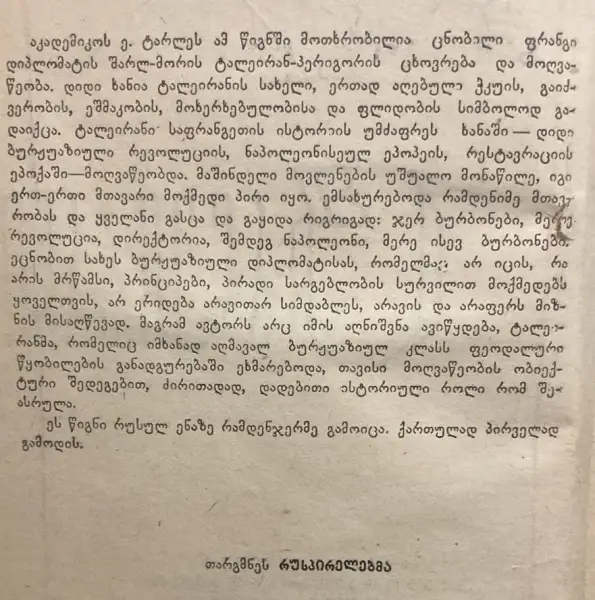 აკადემიკოს ე. ტარლეს ამ წიგნში მოთხრობილია ცნობილი ფრანგი
დიპლომატის შარლ-მორის ტალეირან-პერიგორის ცხოვრება და მოღვა-
წეობა. დიდი ხანია ტალეირანის სახელი, ერთად აღებული ჭკუის, გაიძ-
ვერობის, ეშმაკობის, მოხერხებულობისა და ფლიდობის სიმბოლოდ გა-
დაიქცა. ტალეირანი საფრანგეთის ისტორიის უმძაფრეს ხანაში — დიდი
ბურჟუაზიული რევოლუციის, ნაპოლეონისეულ ეპოპეის, რესტავრაციის
ეპოქაში—მოღვაწეობდა. მაშინდელი მოვლენების უშუალო მონაწილე, იგი
ერთ-ერთი მთავარი მოქმედი პირი იყო. ემსახურებოდა რამდენიმე მთავ-
რობას და ყველანი გასცა და გაყიდა რიგრიგად: ჯერ ბურბონები, მერე
რევოლუცია, დირექტორია, შემდეგ ნაპოლეონი, მერე ისევ ბურბონები.
ეცნობით სახეს ბურჟუაზიული დიპლომატისას, რომელმაც არ იცის, რა
არის მრწამსი, პრინციპები, პირადი სარგებლობის სურვილით მოქმედებს
ყოველთვის, არ ერიდება არავითარ სიმდაბლეს, არავის და არაფერს მიზ-
ნის მისაღწევად. მაგრამ ავტორს არც იმის აღნიშვნა ავიწყდება, ტალეი-
რანმა, რომელიც იმხანად აღმავალ ბურჟუაზიულ კლასს ფეოდალური
წყობილების განადგურებაში ეხმარებოდა, თავისი მოღვაწეობის ობიექ-
ტური შედეგებით, ძირითადად, დადებითი ისტორიული როლი რომ შე-
ასრულა.
ეს წიგნი რუსულ ენაზე რამდენჯერმე გამოიცა. ქართულად პირველად
გამოდის.
თარგმნეს რუსპირელებმა